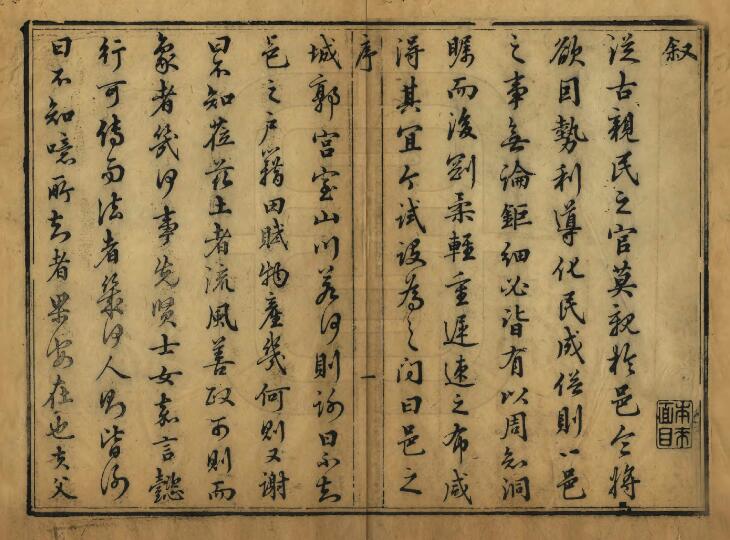 叙
從古親民之官莫親於邑令將
欲因勢利導化民成俗則一邑
之事無論鉅細必皆有以周知洞
矚而後剛柔輕重遲速之布咸
得其宜今試設為之问曰邑之
序
一
城郭宫室山川若何則謝曰不知
邑之户籍田賦物產幾何則又謝
曰不知蒞兹土者流風善政可則而
象者幾何事先贤士女嘉言懿
行可傳而法者幾何人則皆謝
曰不知噫所知者果安在也夫父
本來面目